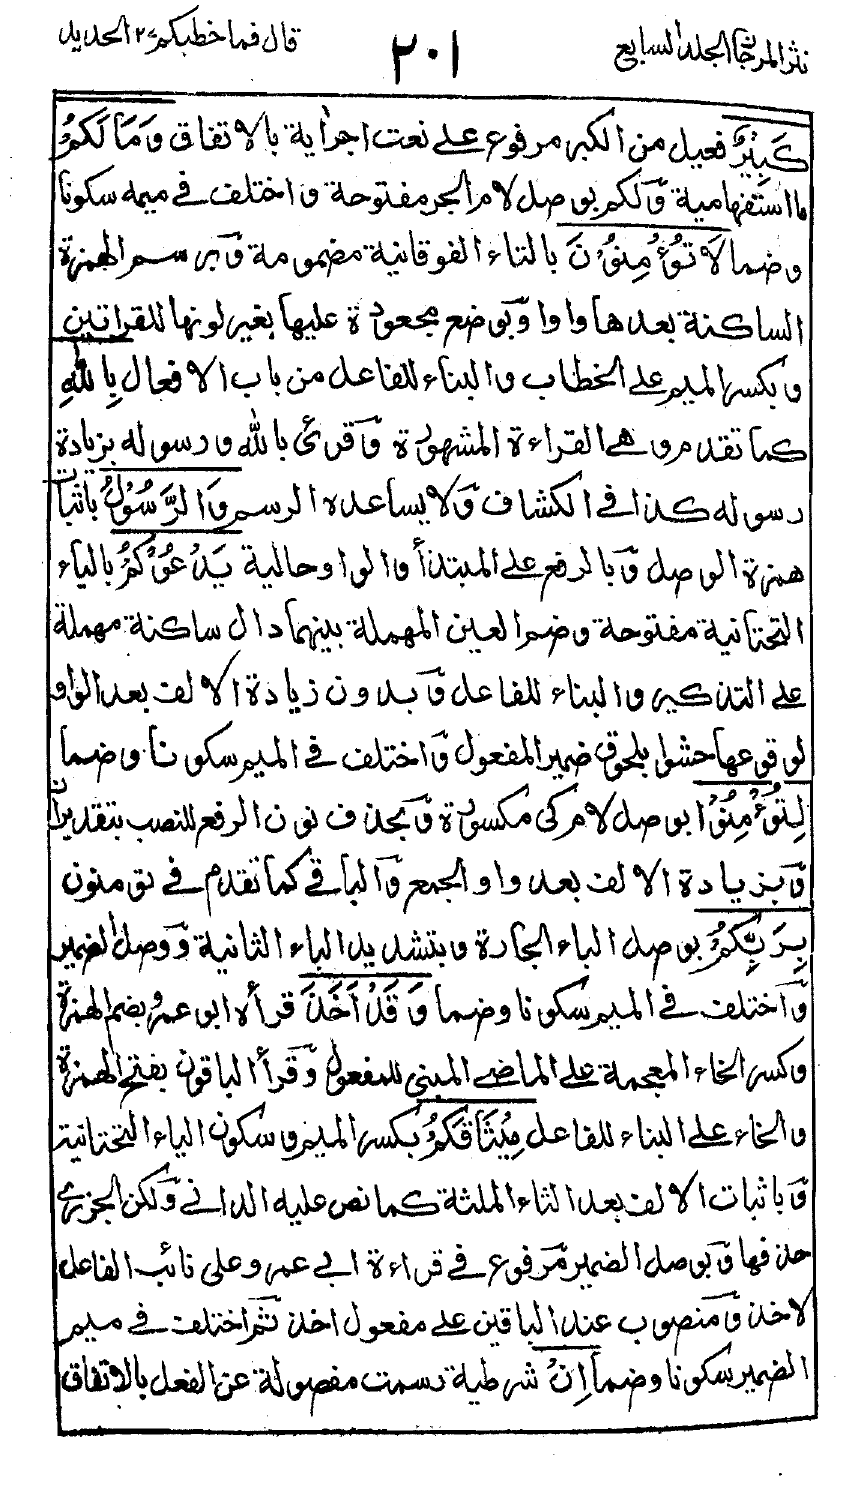 نثر المرجان المجلد السابع
٢٠١
قال فما خطبكم ٢٧ الحديد
كَبِيْرٌ فعيل من الكبر مرفوع على نعت اجراية بالاتفاق وَمَا لَكُمْ
ما استفهامية وَلكم بوصل لام الجر مفتوحة واختلف في ميمه سكونا
وضما لَا تُؤْمِنُوْنَ بالتاء الفوقانية مضمومة وبرسم الهمزة
الساكنة بعدها واوا وبوضع مجعودة عليها بغير لونها للقراتين
وبكسر الميم على الخطاب والبناء للفاعل من باب الافعال بِاللهِ
كما تقدم وهي القراءة المشهورة وقرئ بالله ورسوله بزيادة
رسوله كذا في الكشاف ولا يساعده الرسم وَالرَّسُوْلُ باثبات
همزة الوصل وبالرفع على المبتدأ والواو حالية يَدْعُوْكُمْ بالياء
التحتانية مفتوحة وضم العين المهملة بينهما دال ساكنة مهملة
على التذكير والبناء للفاعل وبدون زيادة الالف بعد الواو
لوقوعها حشوا بلحوق ضمير المفعول واختلف في الميم سكونا وضما
لِتُؤْمِنُوْا بوصل لام كي مكسورة وبحذف نون الرفع للنصب بتقدير ان
وبزيادة الالف بعد واو الجمع والباقي كما تقدم في تؤمنون
بِرَبِّكُمْ بوصل الباء الجارة وبتشديد الباء الثانية ووصل الضمير
واختلف في الميم سكونا وضما وَقَدْ اَخَذَ قرأه ابو عمرو بضم الهمزة
وكسر الخاء المعجمة على الماضي المبني للمفعول وقرأ الباقون بفتح الهمزة
والخاء على البناء للفاعل مِيْثَاقَكُمْ بكسر الميم وسكون الياء التحتانية
وباثبات الالف بعد الثاء المثلثة كما نص عليه الداني ولكن الجزري
حذفها وبوصل الضمير مرفوع في قراءة ابي عمرو على نائب الفاعل
لاخذ ومنصوب عند الباقين على مفعول اخذ ثم اختلف في ميم
الضمير سكونا وضما اِنْ شرطية رسمت مفصولة عن الفعل بالاتفاق